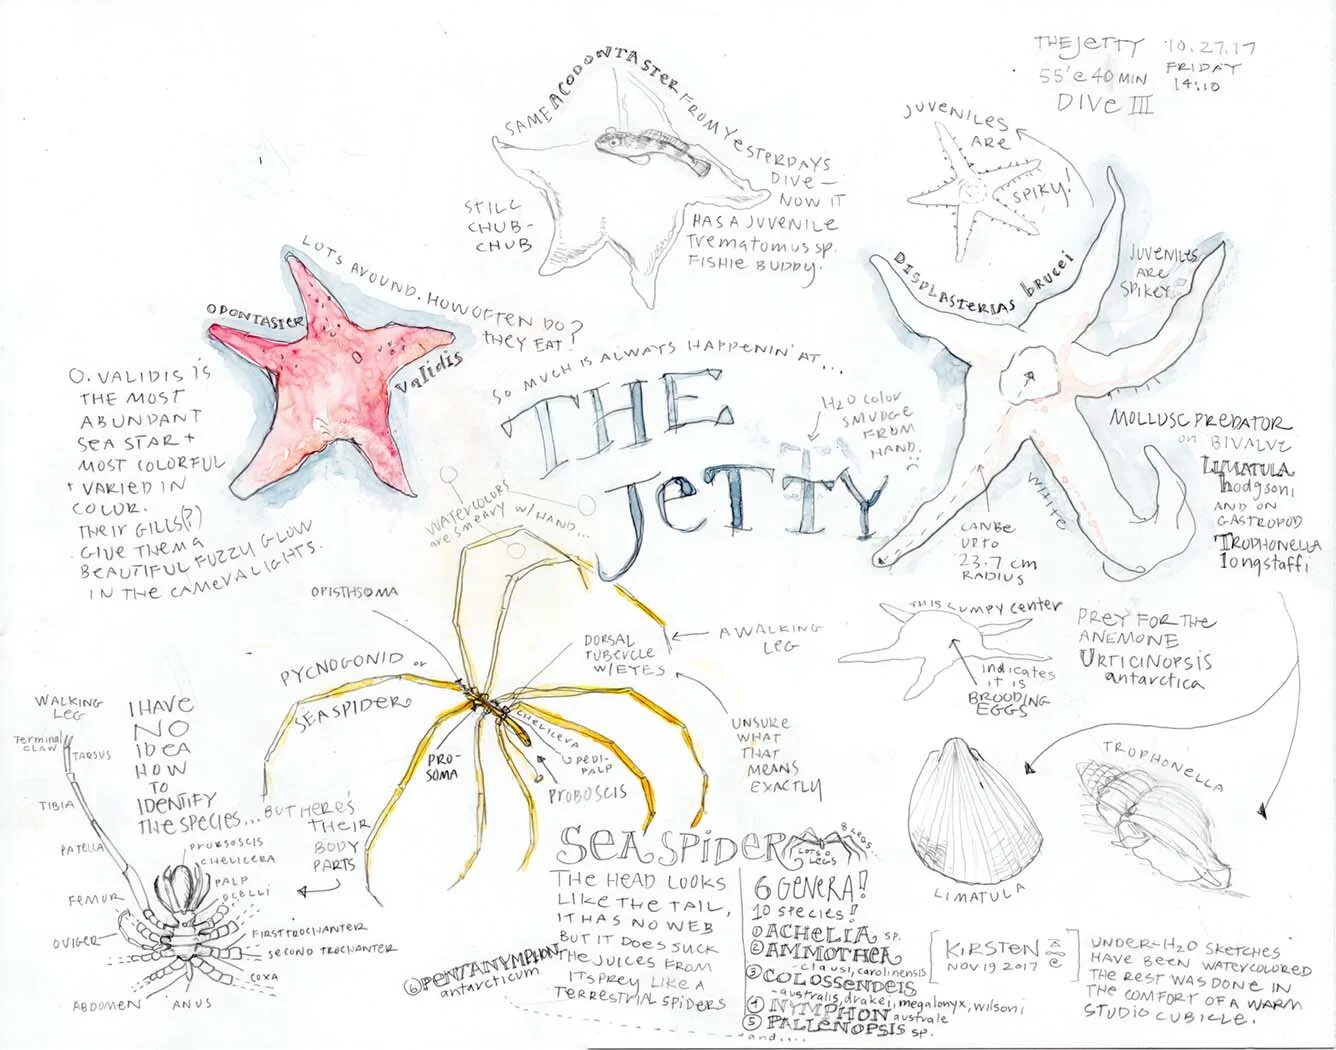 THE JETTY 10.27.17
55' @ 40 MIN FRIDAY
14:10
DIVE III
SAME ACODONTASTER FROM YESTERDAYS
DIVE —
NOW IT
HAS A JUVENILE
Trematomus sp.
FISHIE BUDDY.
STILL
CHUB-
CHUB
JUVENILES
ARE
SPIKY!
DISPLASTERIAS brucei
JUVENILES
ARE
SPIKEY
LOTS AROUND. HOW OFTEN DO
THEY EAT?
ODONTASTER
validis
O. VALIDIS IS
THE MOST
ABUNDANT
SEA STAR +
MOST COLORFUL
+ VARIED IN
COLOR.
THEIR GILLS(?)
GIVE THEM A
BEAUTIFUL FUZZY GLOW
IN THE CAMERA LIGHTS.
SO MUCH IS ALWAYS HAPPENIN' AT...
THE
JETTY
H2O COLOR
SMUDGE
FROM
HAND.
WATERCOLORS
are SMEARY W/ HAND...
MOLLUSC PREDATOR
on BIVALVE
LIMATULA
hodgsoni
AND ON
GASTROPOD
TROPHONELLA
longstaffi
WHITE
CAN BE
UP TO
23.7 cm
RADIUS
THIS LUMPY CENTER
indicates
it is
BROODING
EGGS
PREY FOR THE
ANEMONE
URTICINOPSIS
antarctica
OPISTHSOMA
PYCNOGONID or
SEA SPIDER
DORSAL
TUBERCLE
W/EYES
A WALKING
LEG
UNSURE
WHAT
THAT
MEANS
EXACTLY
CHELICERA
PEDI-
PALP
PRO-
SOMA
PROBOSCIS
WALKING
LEG
TERMINAL
CLAW
TARSUS
TIBIA
PATELLA
FEMUR
OVIGER
ABDOMEN
ANUS
I HAVE
NO
IDEA
HOW
TO
IDENTIFY
THE SPECIES...
BUT HERE'S
THEIR
BODY
PARTS
PROBOSCIS
CHELICERA
PALP
OCELLI
FIRST TROCHANTER
SECOND TROCHANTER
COXA
SEA SPIDER
8 LEGS...
LOTS O
LEGS
THE HEAD LOOKS
LIKE THE TAIL,
IT HAS NO WEB
BUT IT DOES SUCK
THE JUICES FROM
ITS PREY LIKE A
TERRESTRIAL SPIDERS
6 GENERA!
10 species!
① ACHELIA sp.
② AMMOTHEA
- clausi, carolinensis
③ COLOSSENDEIS
- australis, drakei, megalonyx, wilsoni
④ NYMPHON australe
⑤ PALLENOPSIS sp.
and....
⑥ PENTANYMPHON
antarcticum
LIMATULA
TROPHONELLA
KIRSTEN
NOV 19 2017
UNDER-H2O SKETCHES
HAVE BEEN WATERCOLORED
THE REST WAS DONE IN
THE COMFORT OF A WARM
STUDIO CUBICLE.